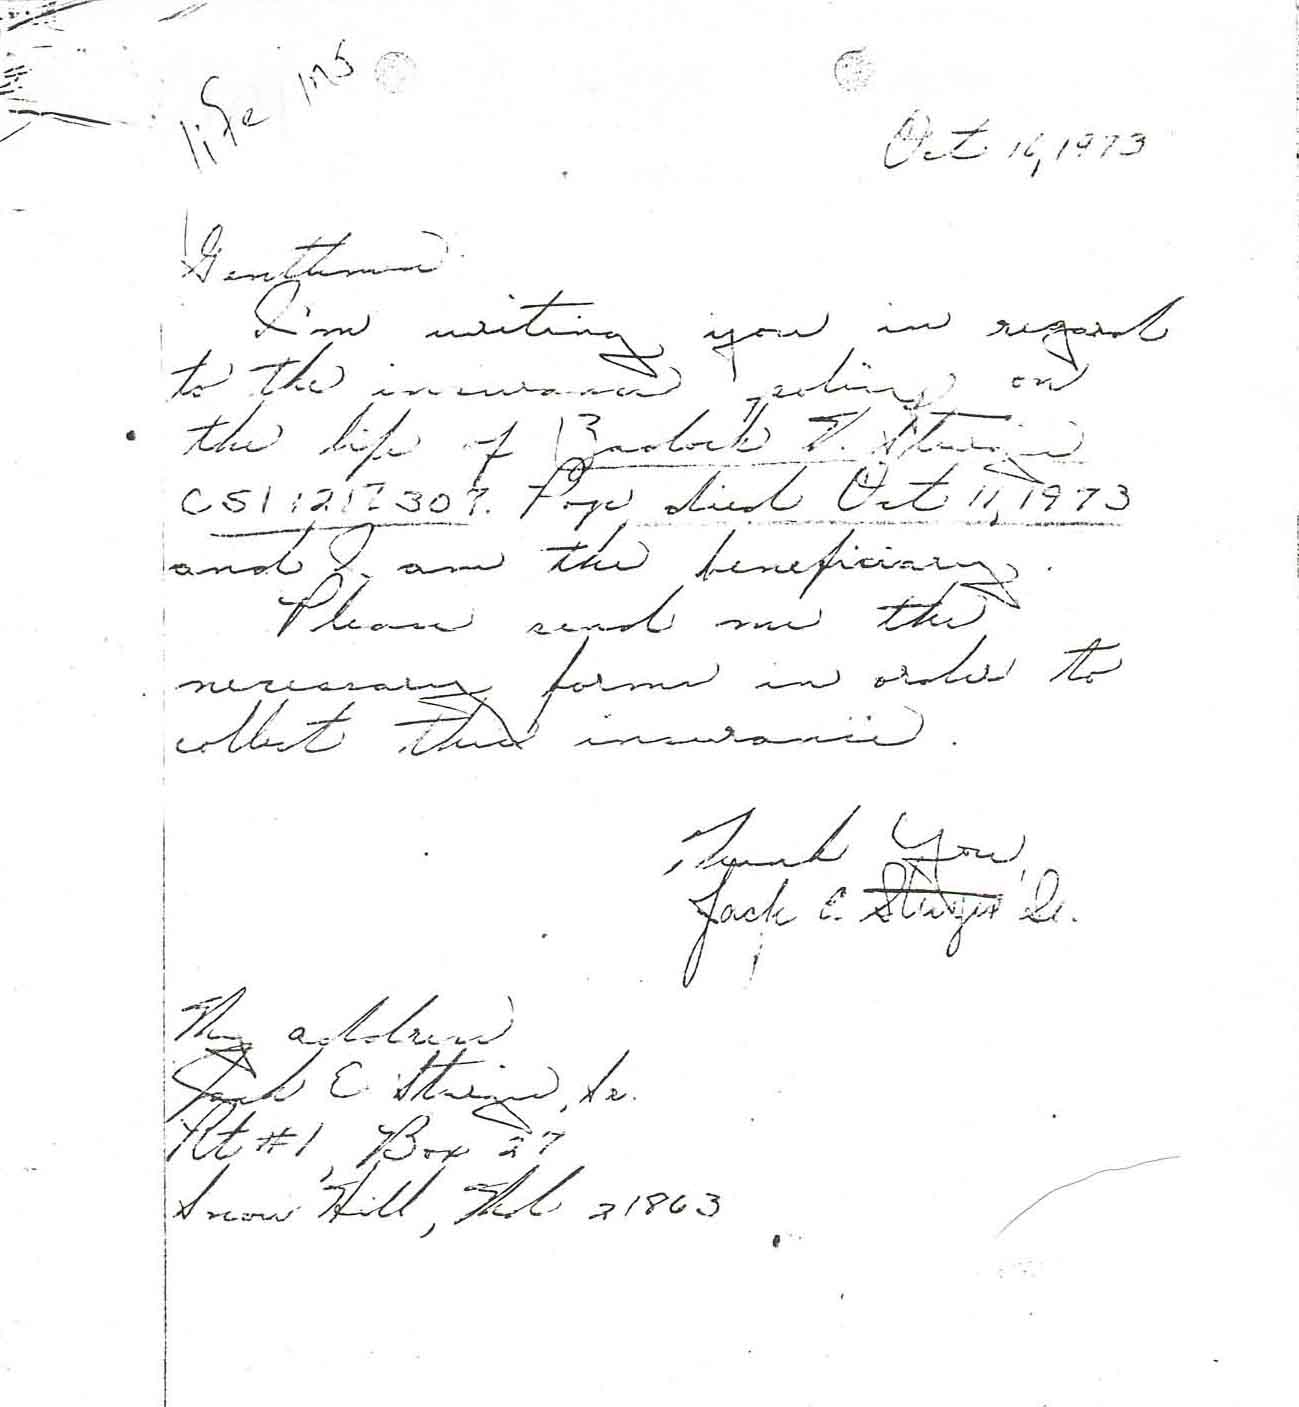 life ins
Oct 16, 1973
Gentlemen
I'm writing you in regard
to the insurance policy on
the life of Zadock T. Sturgis
CSI 1217307. Pop died Oct 11, 1973
and I am the beneficiary.
Please send me the
necessary forms in order to
collect this insurance.
Thank You,
Jack E. Sturgis Sr.
My address
Jack E Sturgis, Sr.
Rt #1 Box 27
Snow Hill, Md 21863